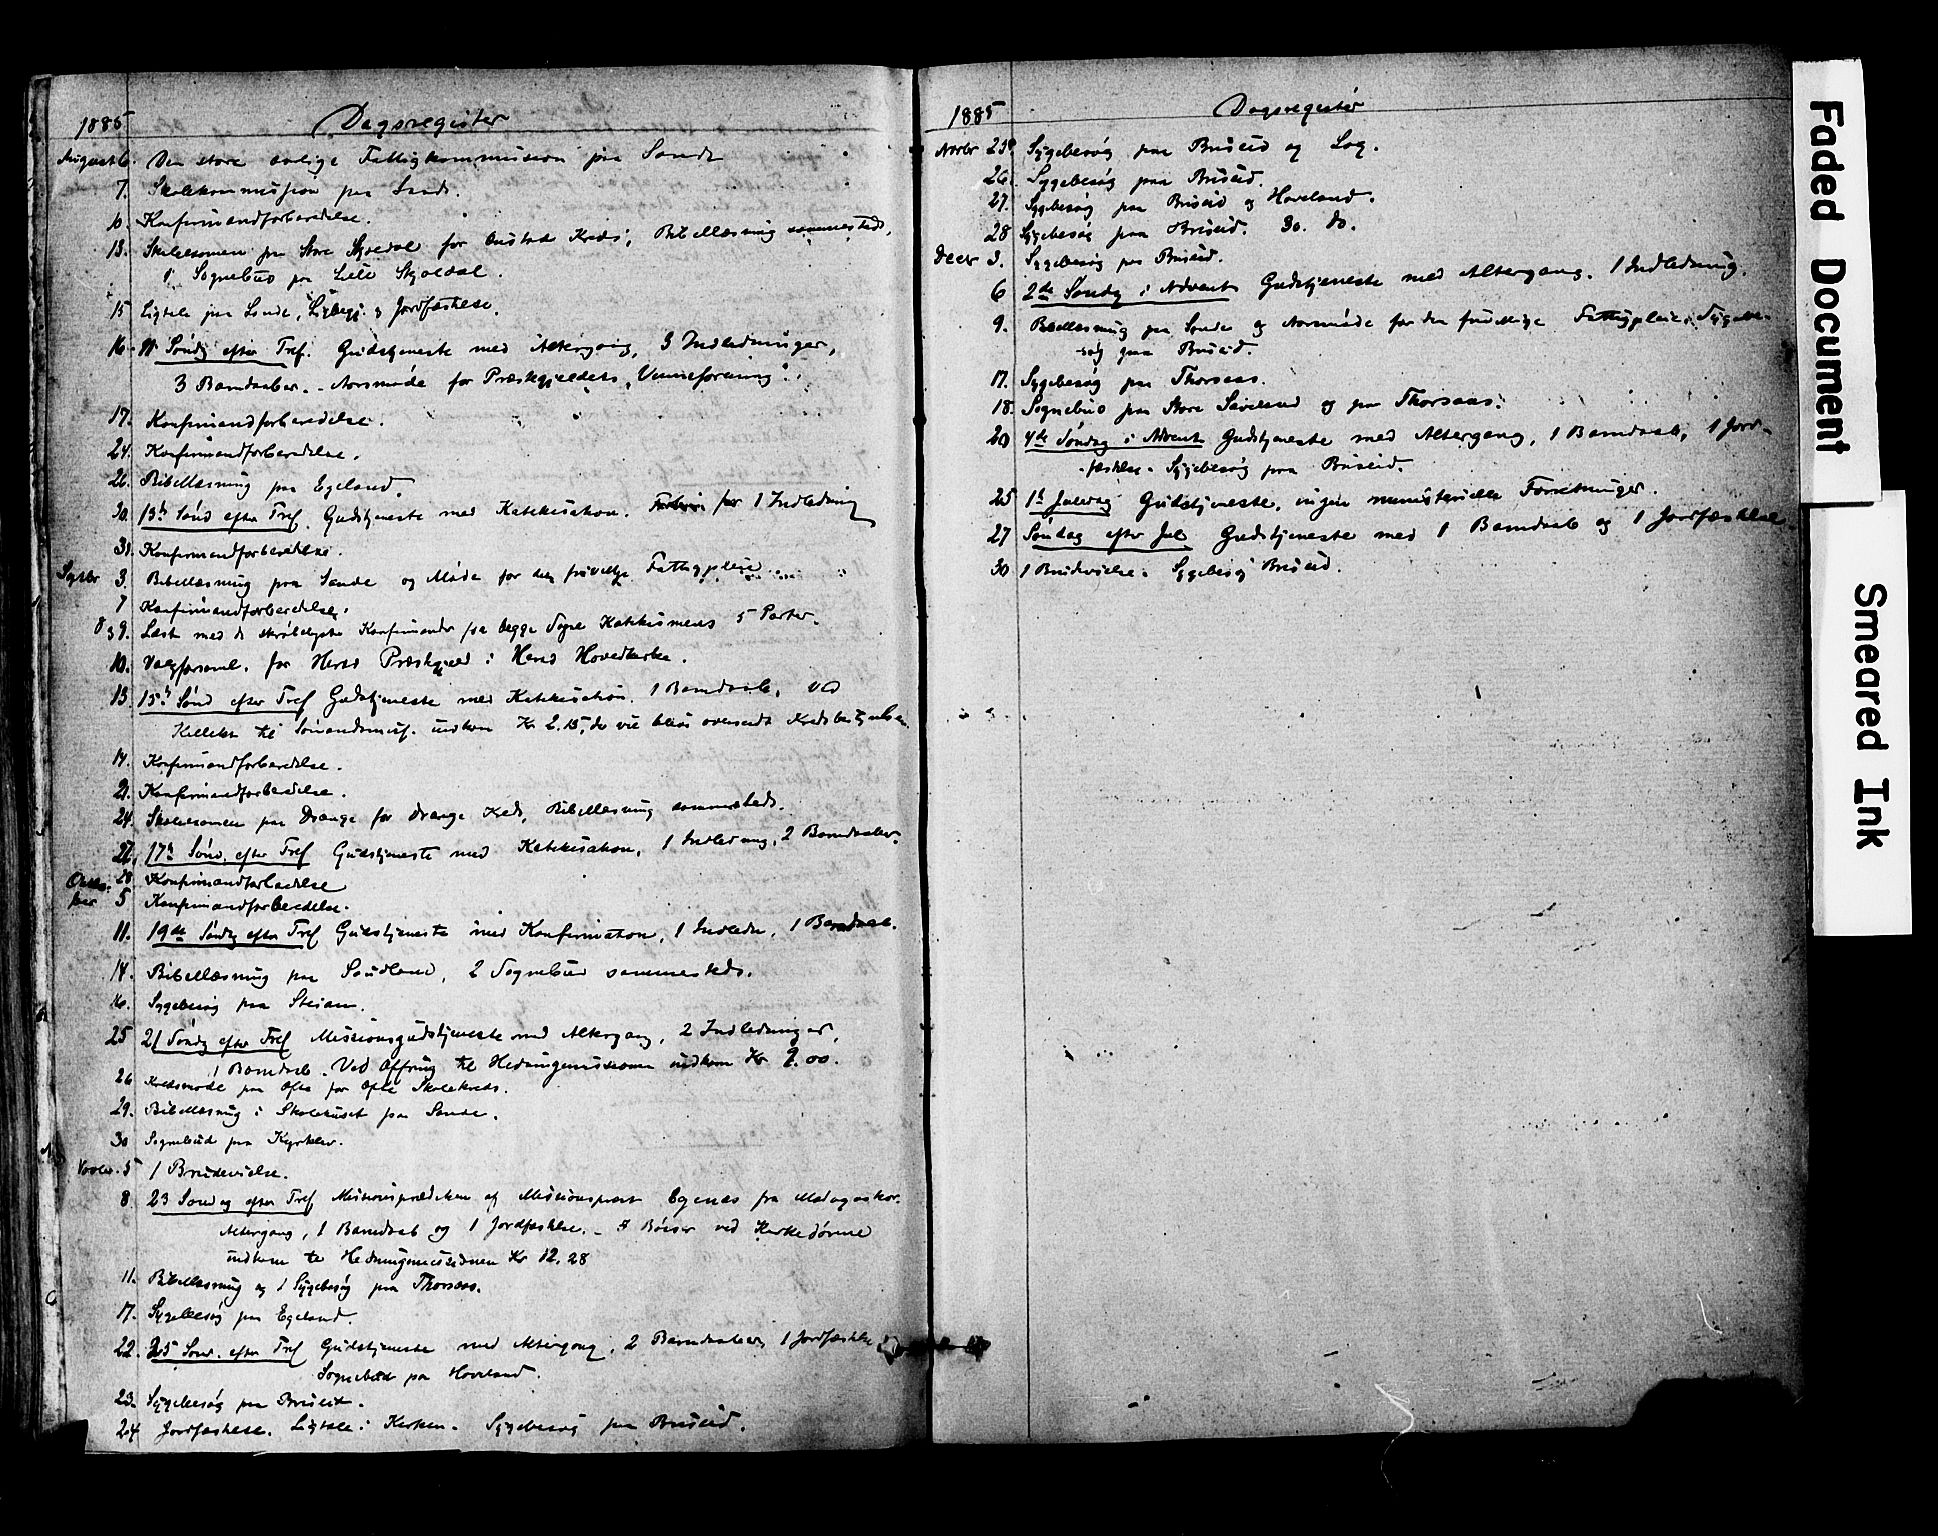 1885 Dagsregister
August 6. Den store aarlige Fattigkommission paa Sande
7. Skolekommission paa Sande.
10. Konfirmandforberedelse.
13. Skoleexamen paa Store Skjoldal for Kreds; Bibellæsning sammesteds,
1 Sognebud paa Lille Skjoldal.
15 Ligtale paa Sande, & Jordfæstelse.
16. 11 Søndg efter Tref. Gudstjeneste med Altergang, 3 Indledninger,
3 Barndaaber. Aarsmøde for Præstegjeldets „Venneforening".
17. Konfirmandforberedelse.
24. Konfirmandforberedelse.
26. Bibellæsning paa Egeland.
30. 13de Sønd efter Tref. Gudstjeneste med Katekisation. for 1 Indledning
31. Konfirmandforberedelse.
Septbr 3. Bibellæsning paa Sande og Møde for den frivillige Fattigpleie.
7 Konfirmandforberedelse.
8 & 9. Læst med de Konfirmander fra begge Sogne Katekismens 5 Parter.
10. Valgforsaml. for Hereds Præstegjeld i Hereds Hovedkirke.
13. 15de Sønd efter Tref Gudstjeneste med Katekisation. 1 Barndaab. Ved
Kollekt til Sømandsmis. indkom Kr 2.15, der vil blive oversendt Kredsbestyrelsen
14. Konfirmandforberedelse.
21. Konfirmandforberedelse.
24. Skoleexamen paa Drange for Drange Kreds, Bibellæsning sammesteds.
27. 17de Sønd. efter Tref Gudstjeneste med Katekisation, 1 Indledning, 2 Barndaaber.
28 Konfirmandforberedelse
Octo-
ber 5 Konfirmandforberedelse.
11. 19de Søndg efter Tref Gudstjeneste med Konfirmation, 1 Indledn, 1 Barndaab.
14. Bibellæsning paa Saudland, 2 Sognebud sammesteds.
16. Sygebesøg paa
25 21 Søndg efter Tref Missionsgudstjeneste med Altergang, 2 Indledninger,
1 Barndaab. Ved Offring til Hedningemissionen indkom Kr 9.00.
26 Kredsmøde paa Ofte for Ofte Skolekreds.
29. Bibellæsning i Skolehuset paa Sande.
30 Sognebud paa
Novbr. 5 1 Brudevielse.
8. 23 Søndag efter Tref Missionsprædiken af Missionsprest Egenæs fra Madagaskar.
Altergang, 1 Barndaab og 1 Jordfæstelse. Bøsser ved Kirkedørene
indkom til Hedningemissionen Kr 12.28
11. Bibellæsning og 1 Sygebesøg paa Thorsaas.
17. Sygebesøg paa Egeland.
22. 25 Sønd. efter Tref Gudstjeneste med Altergang, 2 Barndaaber, 1 Jordfæstelse
Sognebud paa Hoveland.
23. Sygebesøg paa Briseid.
24 Jordfæstelse. Ligtale i Kirken. Sygebesøg paa Briseid.
1885 Dagsregister
Novbr 25 Sygebesøg paa Briseid og Log.
26. Sygebesøg paa Briseid.
27. Sygebesøg paa Briseid og Hoveland.
28 Sygebesøg paa Briseid. 30. do.
Decbr 3. Sygebesøg paa Briseid.
6 2de Søndg i Advent Gudstjeneste med Altergang. 1 Indledning.
9. Bibellæsning paa Sande og Aarsmøde for den frivillige Fattigpleie. Sygebe-
søg paa Briseid.
17. Sygebesøg paa Thorsaas.
18. Sognebud paa Store Sæveland og paa Thorsaas.
20 4de Søndag i Advent Gudstjeneste med Altergang, 1 Barndaab, 1 Jord-
fæstelse. Sygebesøg paa Briseid.
25 1ste Juledag Gudstjeneste, ingen ministerielle Forretninger.
27 Søndag efter Jul Gudstjeneste med 1 Barndaab og 1 Jordfæstelse.
30 1 Brudevielse. Sygebesøg Briseid.
Faded Document
Smeared Ink